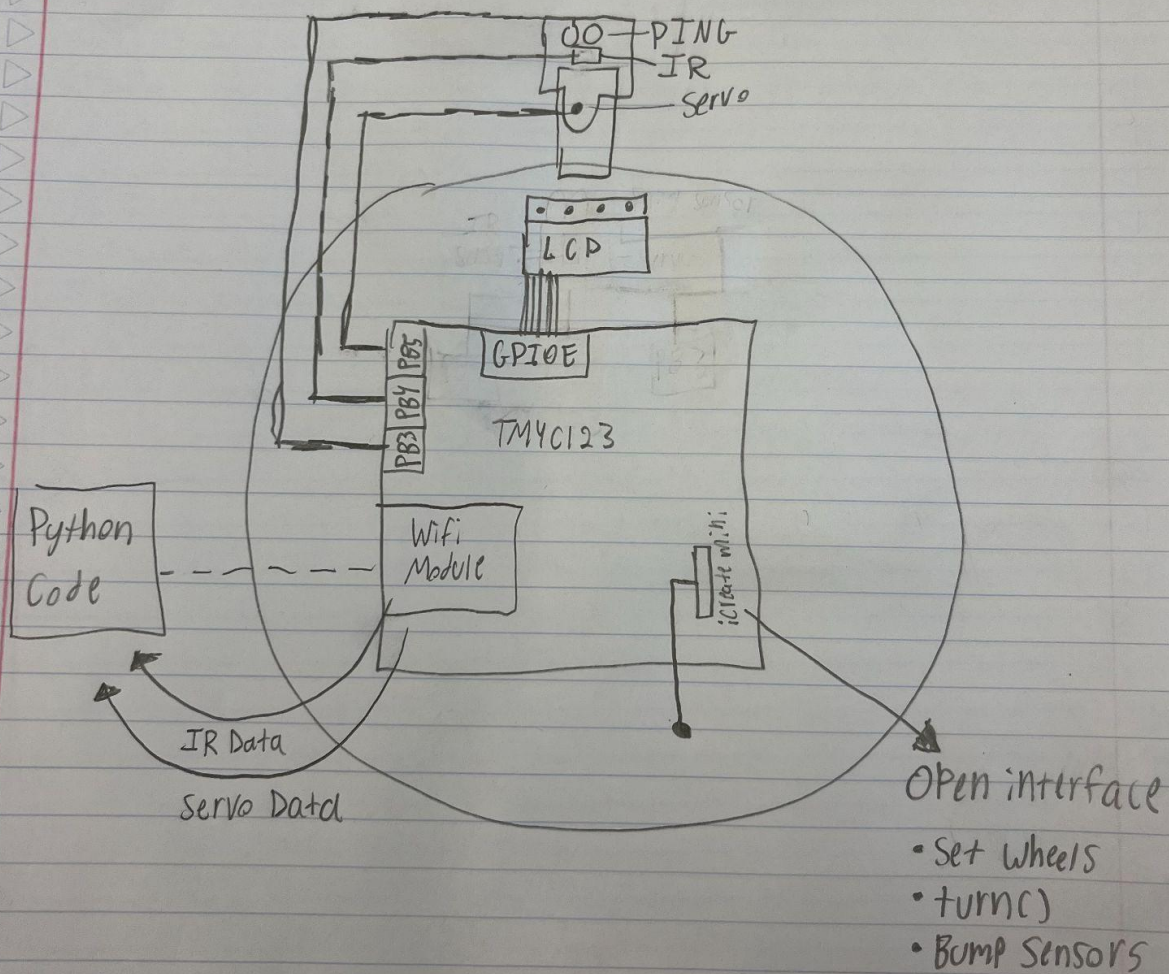 PING
IR
Servo
LCD
GPIOE
PB5
PB4
PB3
TM4C123
Wifi
Module
Python
Code
icreate mini
IR Data
Servo Data
Open interface
• Set Wheels
• turn()
• Bump Sensors